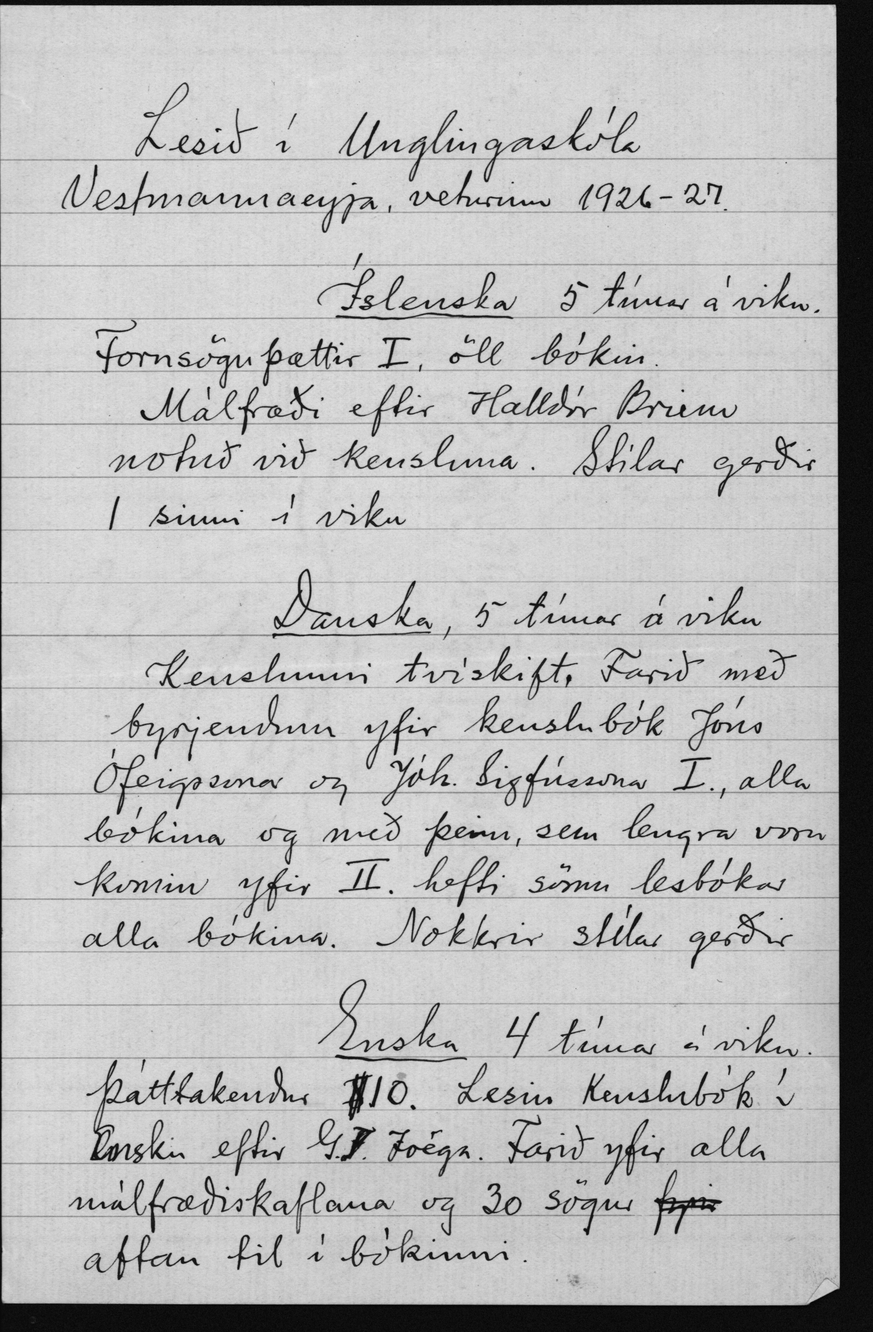 Lesið í Unglingaskóla
Vestmannaeyja, veturinn 1926-27.
Íslenska 5 tímar á viku.
Fornsöguþættir I, öll bókin.
Málfræði eftir Halldór Briem
notuð við kensluna. Stílar gerðir
1 sinni í viku
Danska, 5 tímar á viku
Kenslunni tvískift. Farið með
byrjendum yfir kenslubók Jóns
Ófeigssonar og Jóh. Sigfússonar I., alla
bókina og með þeim, sem lengra voru
komin yfir II. hefti sömu lesbókar
alla bókina. Nokkrir stílar gerðir
Enska 4 tímar á viku.
Þátttakendur 10. Lesin Kenslubók í
Ensku eftir G.T. Zoëga. Farið yfir alla
málfræðiskaflana og 30 sögur
aftan til í bókinni.